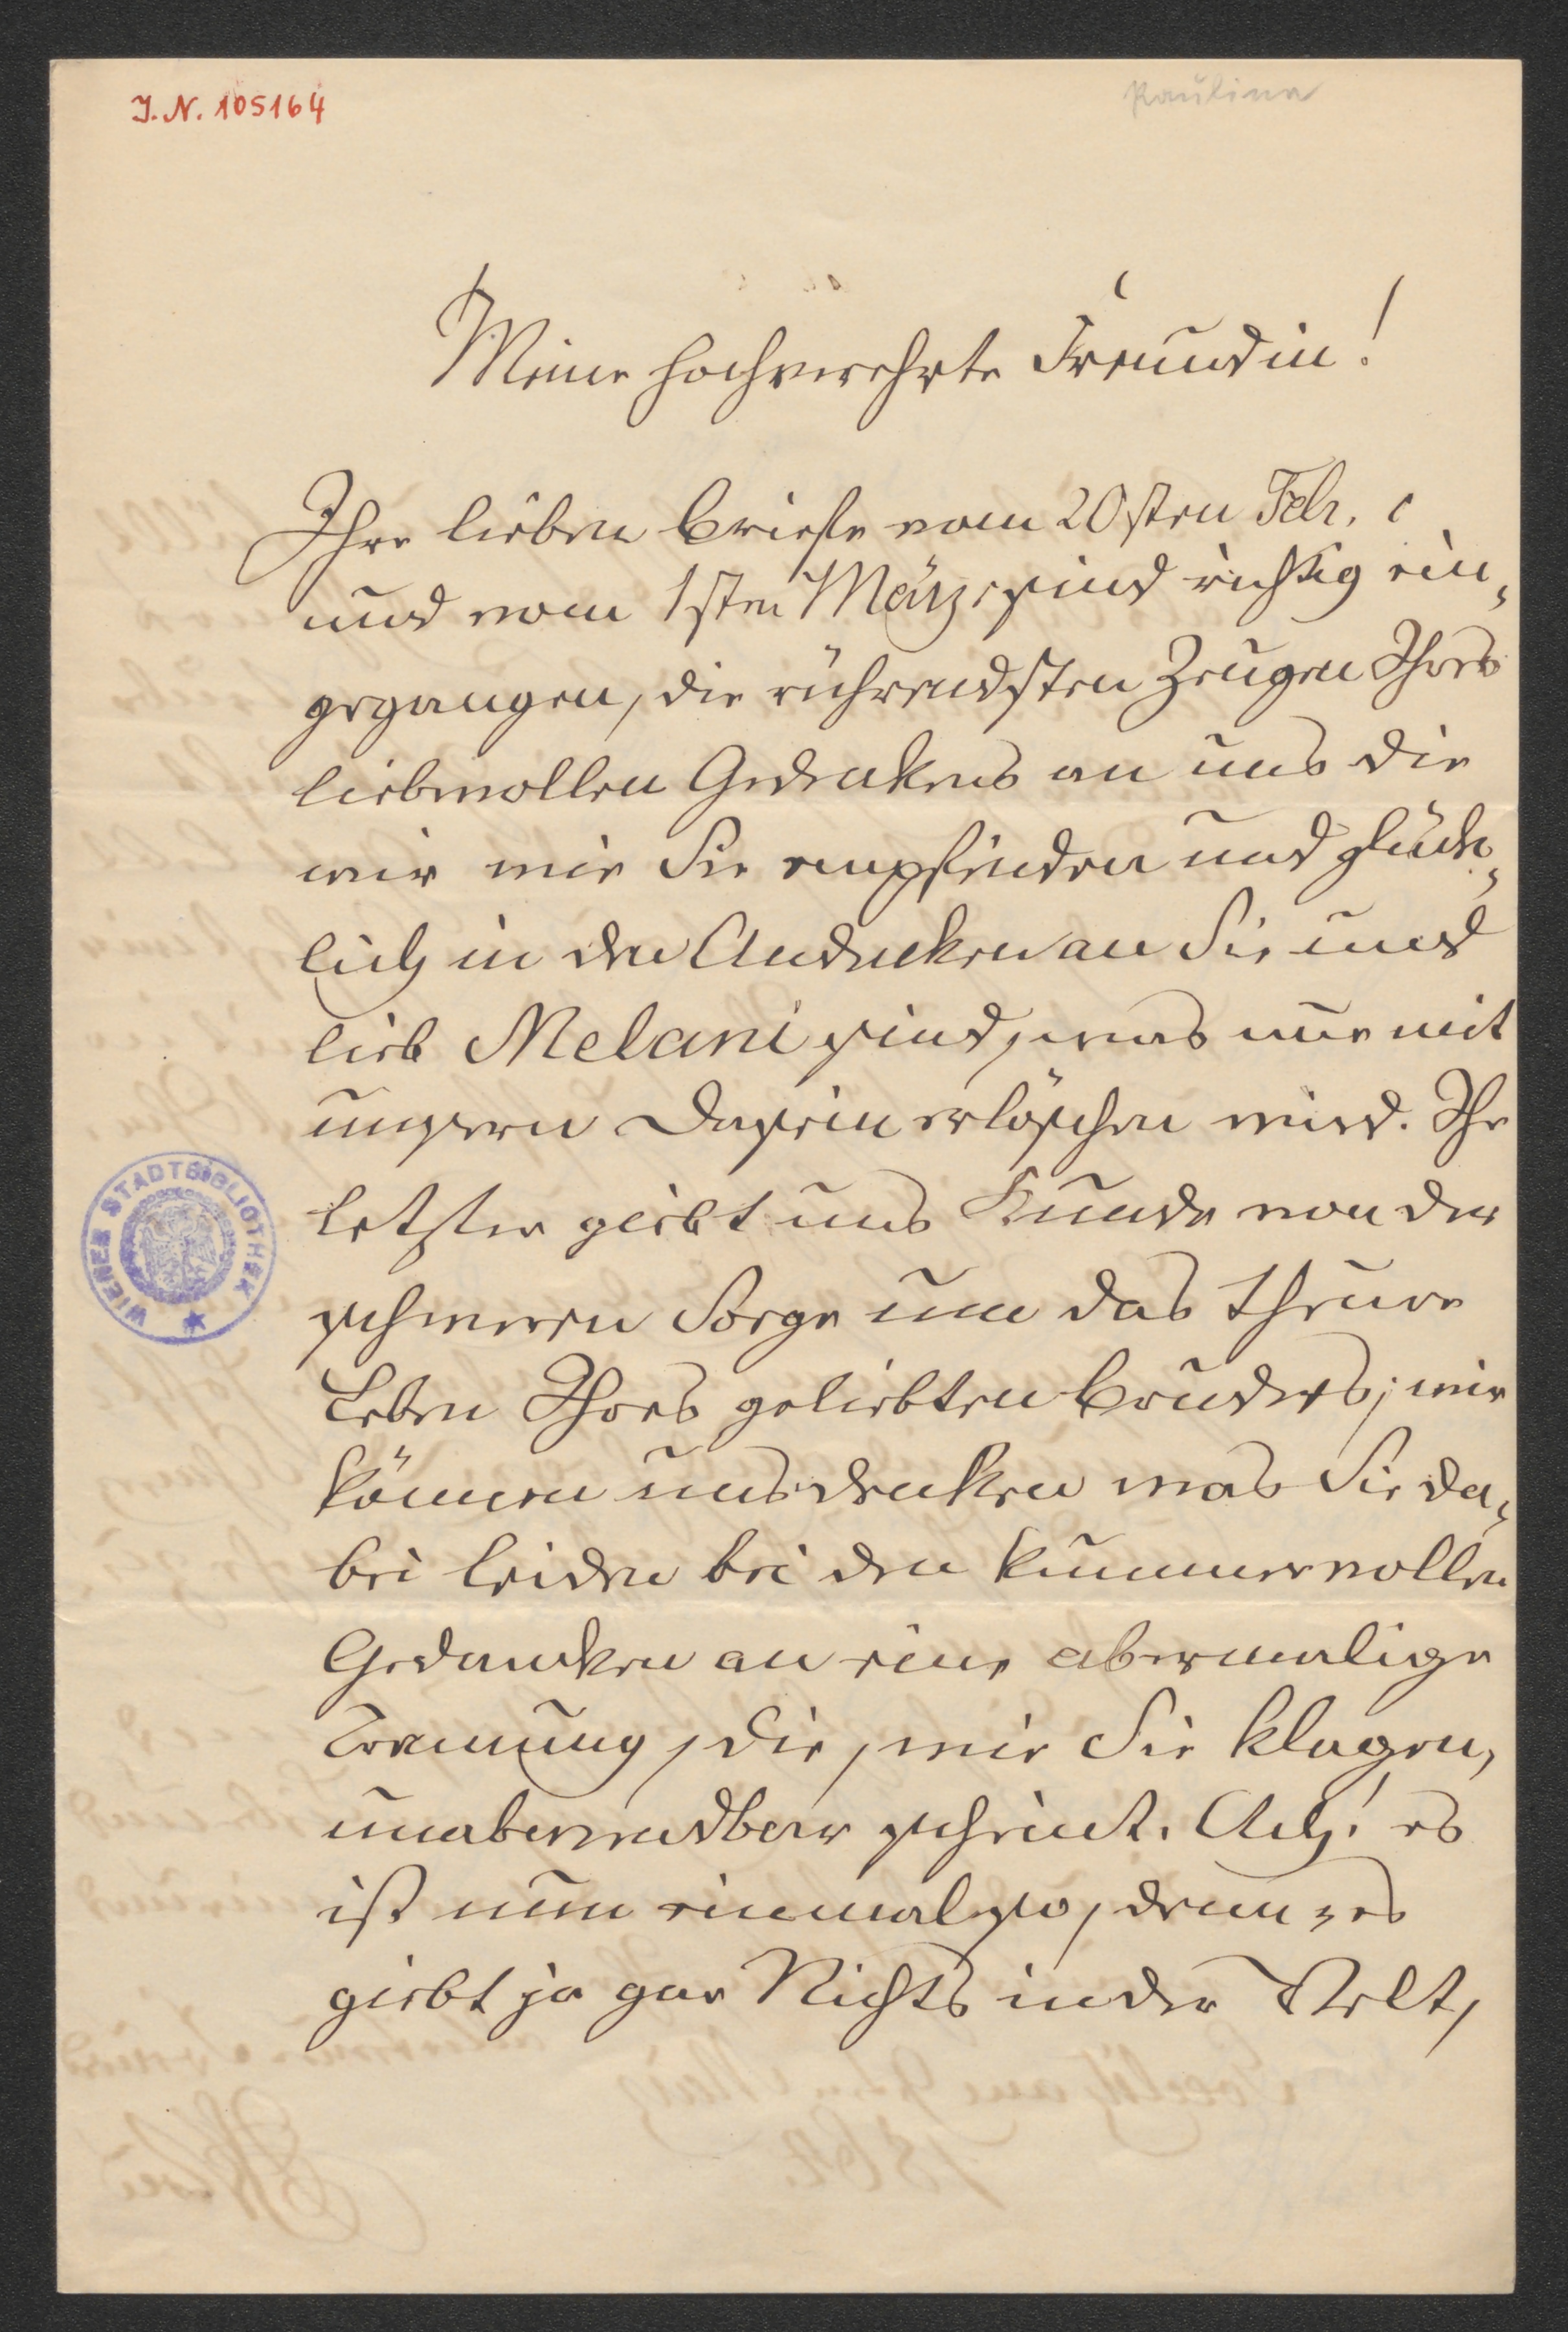 J. N. 105164
Pauline
Meine hochverehrte Freundin!
Ihre lieben Briefe vom 20sten Feb.
und vom 1sten März sind richtig ein,
gegangen, die rührendsten Zeugen Ihres
liebevollen Gedenkens an uns die
wir wie Sie empfinden und glück,
lich in den Andenken an Sie und
lieb Melani sind, was nur mit
unsern Dasein erlöschen wird. Ihr
letzter giebt uns Kunde von der
schweren Sorge um das theure
Leben Ihres geliebten Bruders; wir
können uns denken was Sie da,
bei leiden bei den kummervollen
Gedanken an eine abermalige
Trennung, die, wie Sie klagen,
unabwendbar scheint. Ach! es
ist nun einmal so, denn es
giebt ja gar Nichts in der Welt,
WIENER STADTBIBLIOTHEK